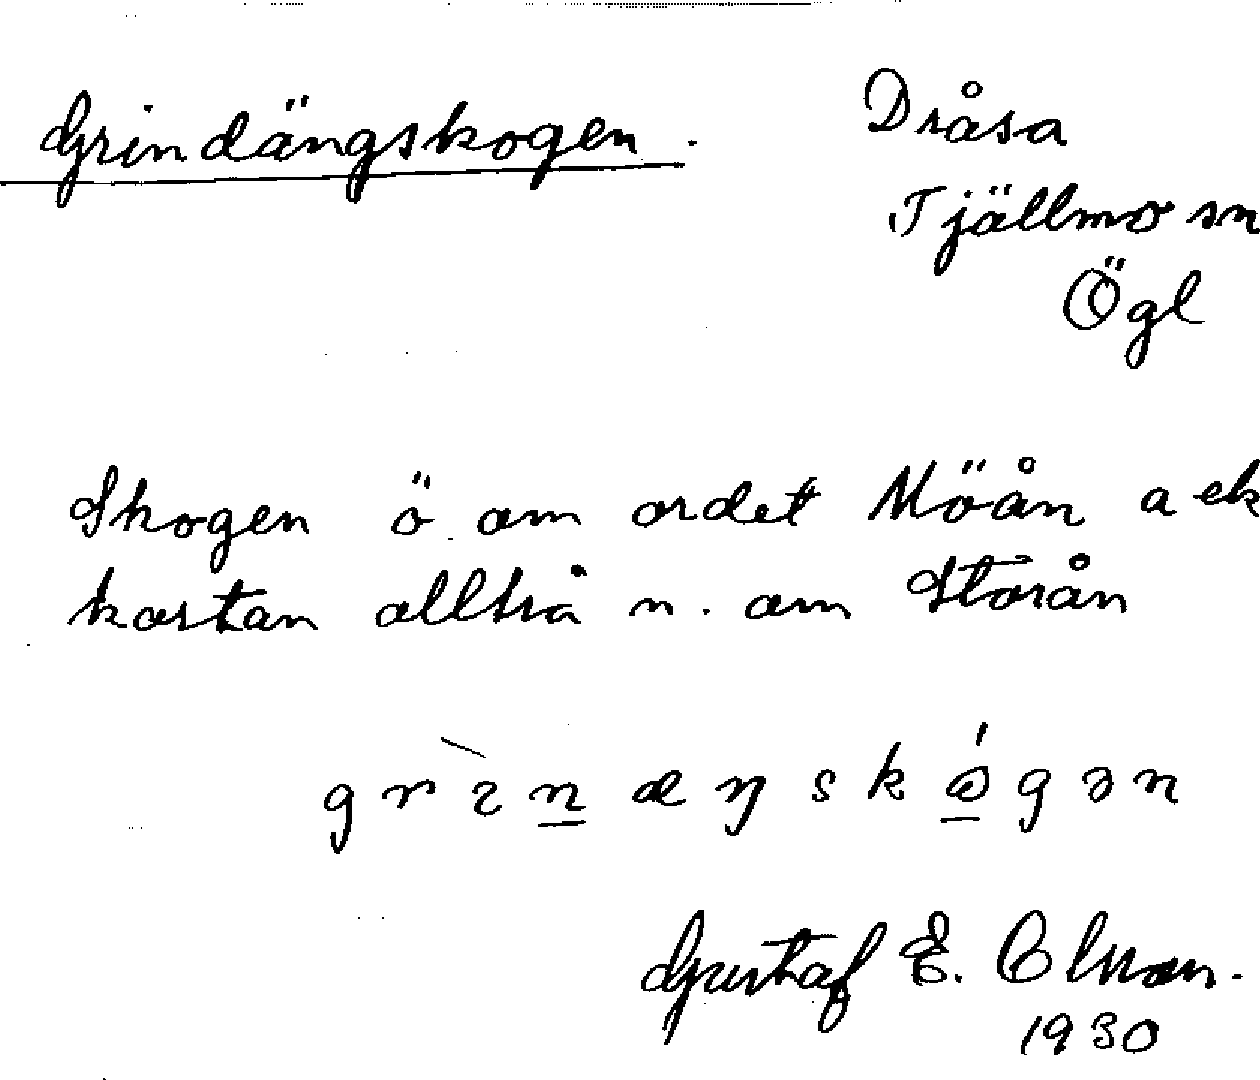 Grindängskogen.
Dråsa
Tjällmo sn
Ögl
Skogen ö om ordet Möån a ek
kartan alltså n. om Storån
grinæŋskogən
Gustaf E. Olson.
1930